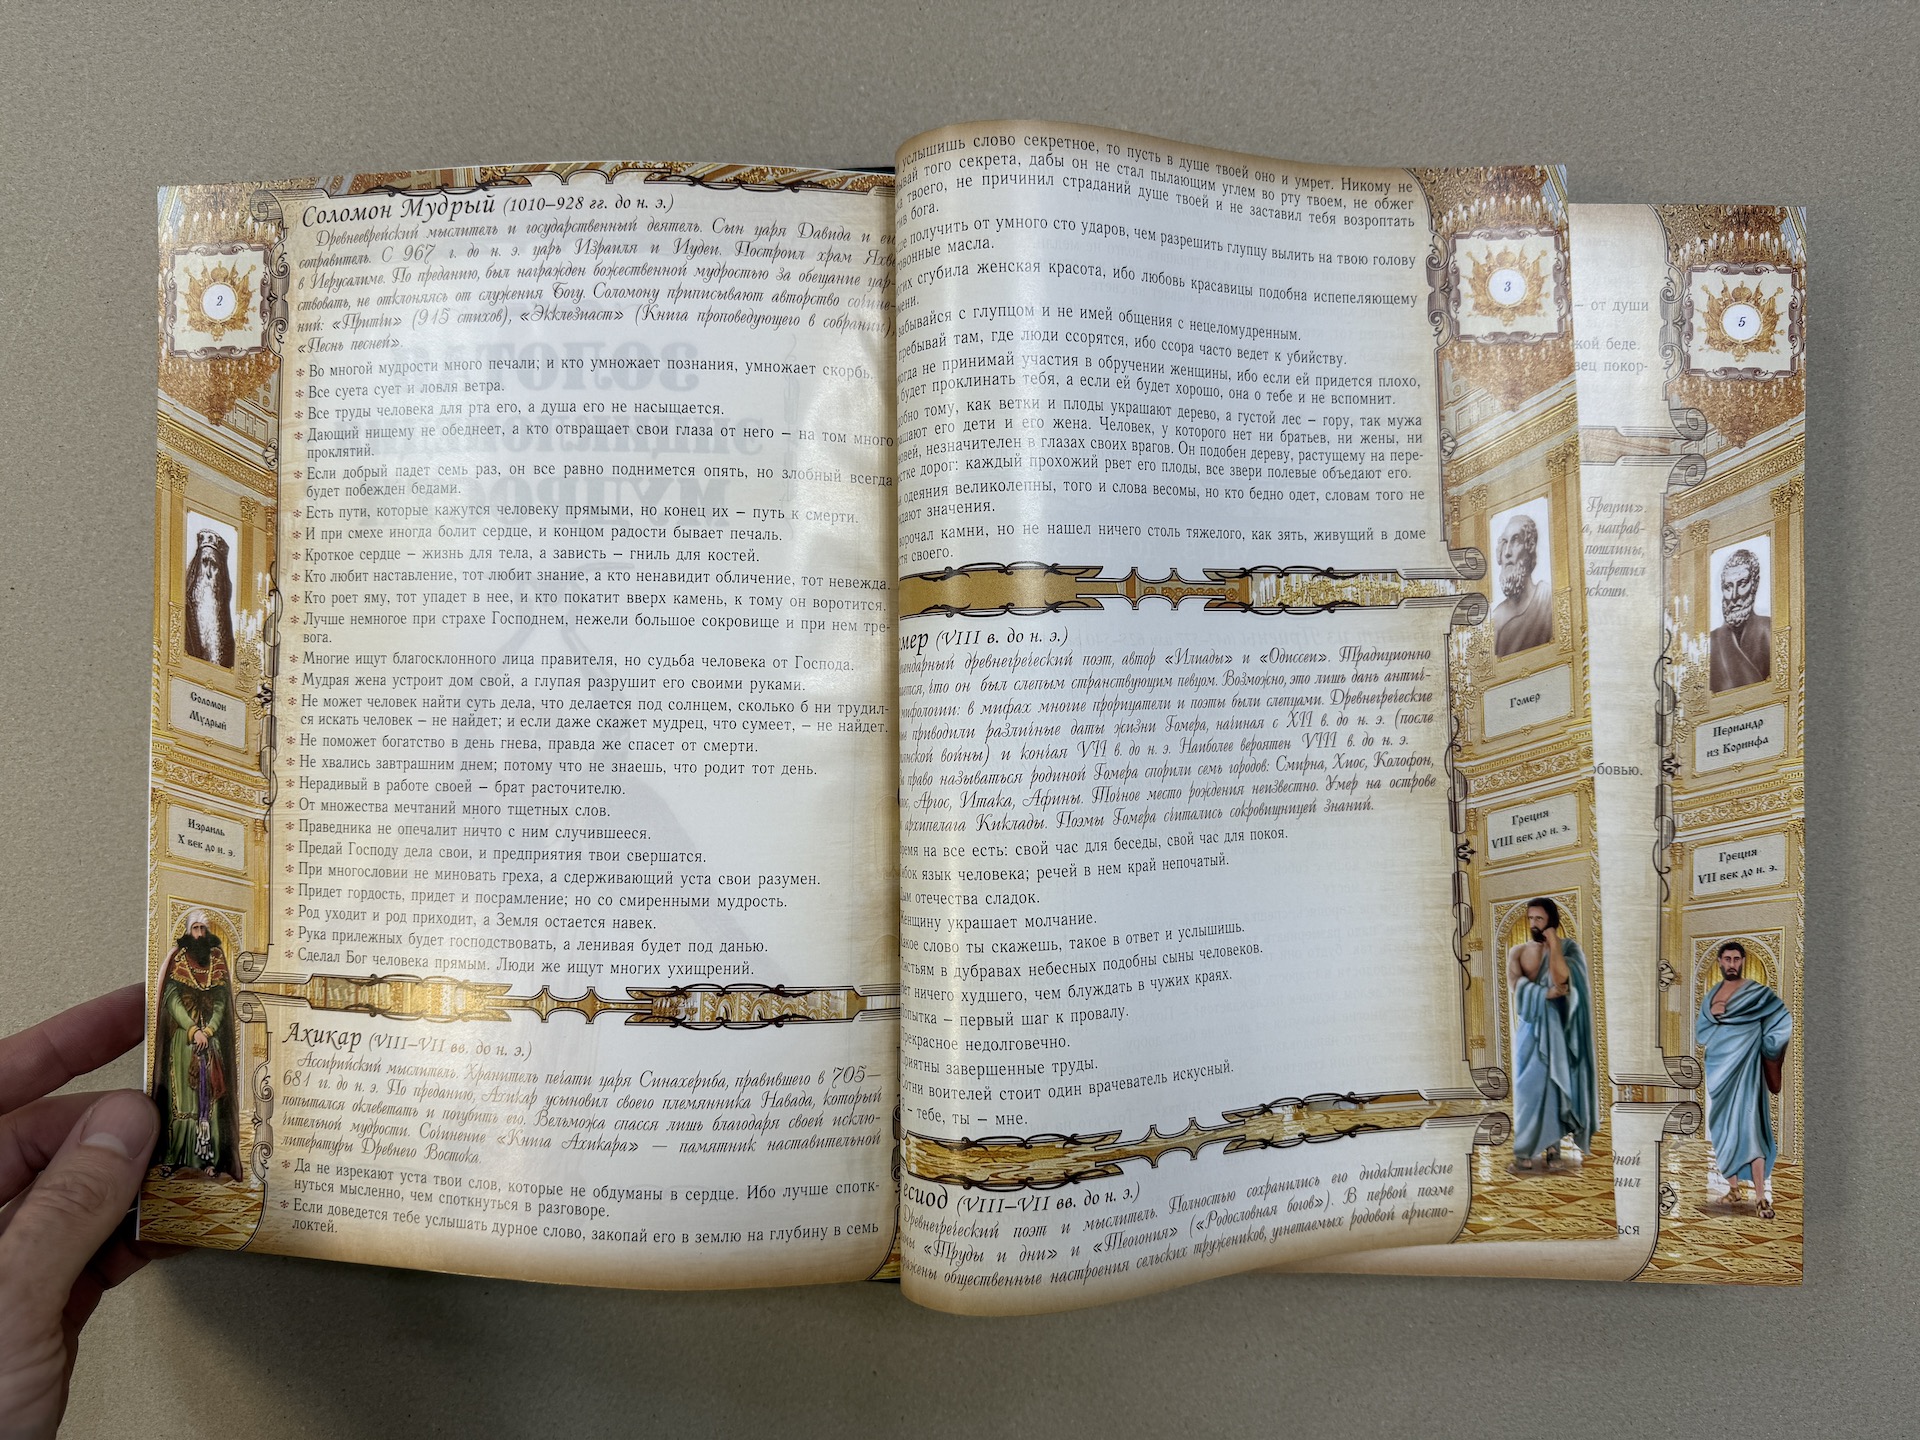 2
Соломон Мудрый (1010–928 гг. до н. э.)
Древнееврейский мыслитель и государственный деятель. Сын царя Давида и его
соправитель. С 967 г. до н. э. царь Израиля и Иудеи. Построил храм Яхве
в Иерусалиме. По преданию, был награжден божественной мудростью за обещание цар-
ствовать, не отклоняясь от служения Богу. Соломону приписывают авторство сочине-
ний: «Притчи» (915 стихов), «Экклезиаст» (Книга проповедующего в собрании),
«Песнь песней».
Во многой мудрости много печали; и кто умножает познания, умножает скорбь.
Все суета сует и ловля ветра.
Все труды человека для рта его, а душа его не насыщается.
Дающий нищему не обеднеет, а кто отвращает свои глаза от него – на том много
проклятий.
Если добрый падет семь раз, он все равно поднимется опять, но злобный всегда
будет побежден бедами.
Есть пути, которые кажутся человеку прямыми, но конец их – путь к смерти.
И при смехе иногда болит сердце, и концом радости бывает печаль.
Кроткое сердце – жизнь для тела, а зависть – гниль для костей.
Кто любит наставление, тот любит знание, а кто ненавидит обличение, тот невежда.
Кто роет яму, тот упадет в нее, и кто покатит вверх камень, к тому он воротится.
Лучше немногое при страхе Господнем, нежели большое сокровище и при нем тре-
вога.
Многие ищут благосклонного лица правителя, но судьба человека от Господа.
Мудрая жена устроит дом свой, а глупая разрушит его своими руками.
Не может человек найти суть дела, что делается под солнцем, сколько б ни трудил-
ся искать человек – не найдет; и если даже скажет мудрец, что сумеет, – не найдет.
Не поможет богатство в день гнева, правда же спасет от смерти.
Не хвались завтрашним днем; потому что не знаешь, что родит тот день.
Нерадивый в работе своей – брат расточителю.
От множества мечтаний много тщетных слов.
Праведника не опечалит ничто с ним случившееся.
Предай Господу дела свои, и предприятия твои свершатся.
При многословии не миновать греха, а сдерживающий уста свои разумен.
Придет гордость, придет и посрамление; но со смиренными мудрость.
Род уходит и род приходит, а Земля остается навек.
Рука прилежных будет господствовать, а ленивая будет под данью.
Сделал Бог человека прямым. Люди же ищут многих ухищрений.
Соломон
Мудрый
Израиль
X век до н. э.
Ахикар (VIII–VII вв. до н. э.)
Ассирийский мыслитель. Хранитель печати царя Синахериба, правившего в 705—
681 гг. до н. э. По преданию, Ахикар усыновил своего племянника Навада, который
попытался оклеветать и погубить его. Вельможа спасся лишь благодаря своей исклю-
чительной мудрости. Сочинение «Книга Ахикара» — памятник наставительной
литературы Древнего Востока.
Да не изрекают уста твои слов, которые не обдуманы в сердце. Ибо лучше спотк-
нуться мысленно, чем споткнуться в разговоре.
Если доведется тебе услышать дурное слово, закопай его в землю на глубину в семь
локтей.
услышишь слово секретное, то пусть в душе твоей оно и умрет. Никому не
вай того секрета, дабы он не стал пылающим углем во рту твоем, не обжег
твоего, не причинил страданий душе твоей и не заставил тебя возроптать
бога.
получить от умного сто ударов, чем разрешить глупцу вылить на твою голову
вонные масла.
сгубила женская красота, ибо любовь красавицы подобна испепеляющему
мени.
абывайся с глупцом и не имей общения с нецеломудренным.
ребывай там, где люди ссорятся, ибо ссора часто ведет к убийству.
огда не принимай участия в обручении женщины, ибо если ей придется плохо,
будет проклинать тебя, а если ей будет хорошо, она о тебе и не вспомнит.
обно тому, как ветки и плоды украшают дерево, а густой лес – гору, так мужа
ашают его дети и его жена. Человек, у которого нет ни братьев, ни жены, ни
новей, незначителен в глазах своих врагов. Он подобен дереву, растущему на пере-
стке дорог: каждый прохожий рвет его плоды, все звери полевые объедают его.
одеяния великолепны, того и слова весомы, но кто бедно одет, словам того не
дают значения.
орочал камни, но не нашел ничего столь тяжелого, как зять, живущий в доме
тя своего.
мер (VIII в. до н. э.)
ендарный древнегреческий поэт, автор «Илиады» и «Одиссеи». Традиционно
ится, что он был слепым странствующим певцом. Возможно, это лишь дань антич-
мифологии: в мифах многие прорицатели и поэты были слепцами. Древнегреческие
ы приводили различные даты жизни Гомера, начиная с XII в. до н. э. (после
нской войны) и кончая VII в. до н. э. Наиболее вероятен VIII в. до н. э.
а право называться родиной Гомера спорили семь городов: Смирна, Хиос, Колофон,
ос, Аргос, Итака, Афины. Точное место рождения неизвестно. Умер на острове
архипелага Киклады. Поэмы Гомера считались сокровищницей знаний.
ремя на все есть: свой час для беседы, свой час для покоя.
ибок язык человека; речей в нем край непочатый.
ым отечества сладок.
Женщину украшает молчание.
акое слово ты скажешь, такое в ответ и услышишь.
Листьям в дубравах небесных подобны сыны человеков.
ет ничего худшего, чем блуждать в чужих краях.
Попытка – первый шаг к провалу.
Прекрасное недолговечно.
риятны завершенные труды.
отни воителей стоит один врачеватель искусный.
– тебе, ты – мне.
есиод (VIII–VII вв. до н. э.)
Древнегреческий поэт и мыслитель. Полностью сохранились его дидактические
мы «Труды и дни» и «Теогония» («Родословная богов»). В первой поэме
ажены общественные настроения сельских тружеников, угнетаемых родовой аристо-
3
Гомер
Греция
VIII век до н. э.
– от души
кой беде.
вец покор-
Греции».
а, направ-
пошлины,
Запретил
оскоши.
бовью.
дной
нил
ься
5
Периандр
из Коринфа
Греция
VII век до н. э.